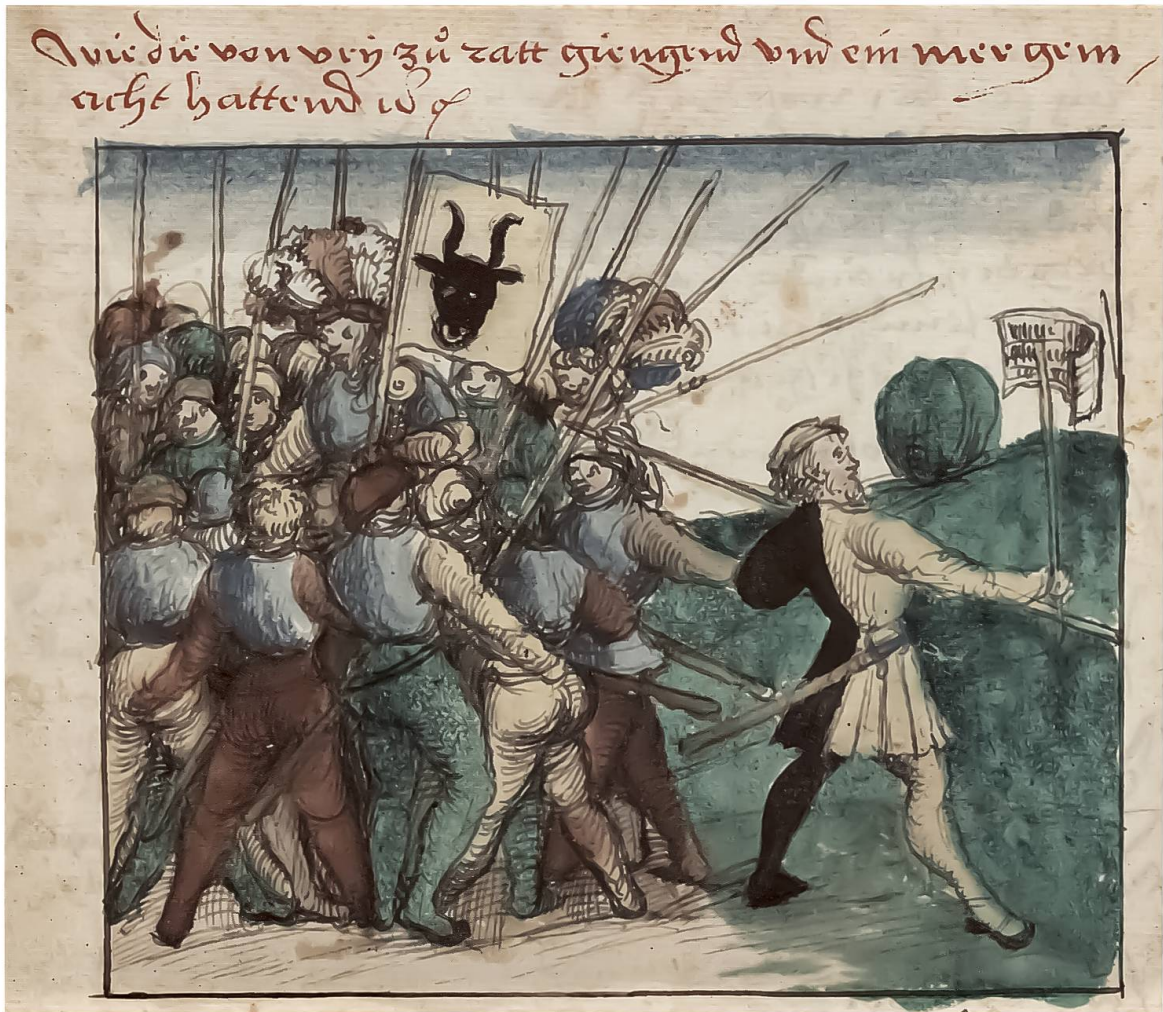 Wie die von vry zů ratt giengend vnd ein mer gem
acht hattend